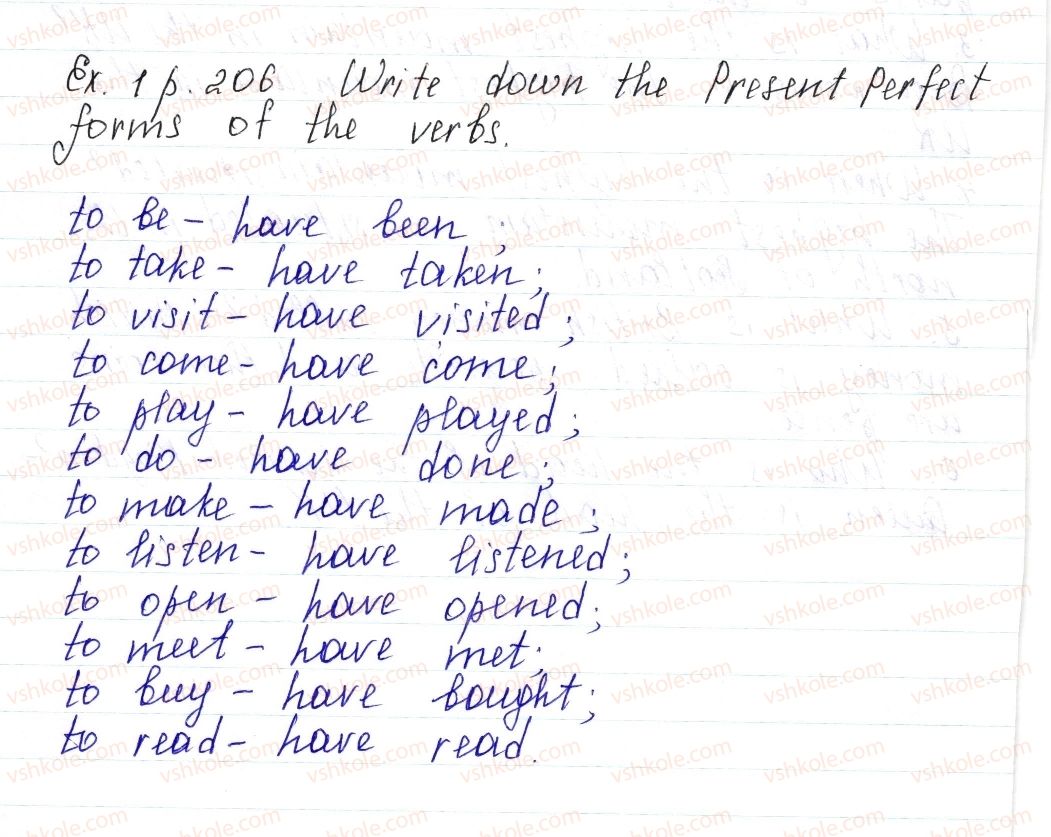 Ex. 1 p. 206 Write down the Present Perfect
forms of the verbs.
to be – have been;
to take – have taken;
to visit – have visited;
to come – have come;
to play – have played;
to do – have done;
to make – have made;
to listen – have listened;
to open – have opened;
to meet – have met;
to buy – have bought;
to read – have read.